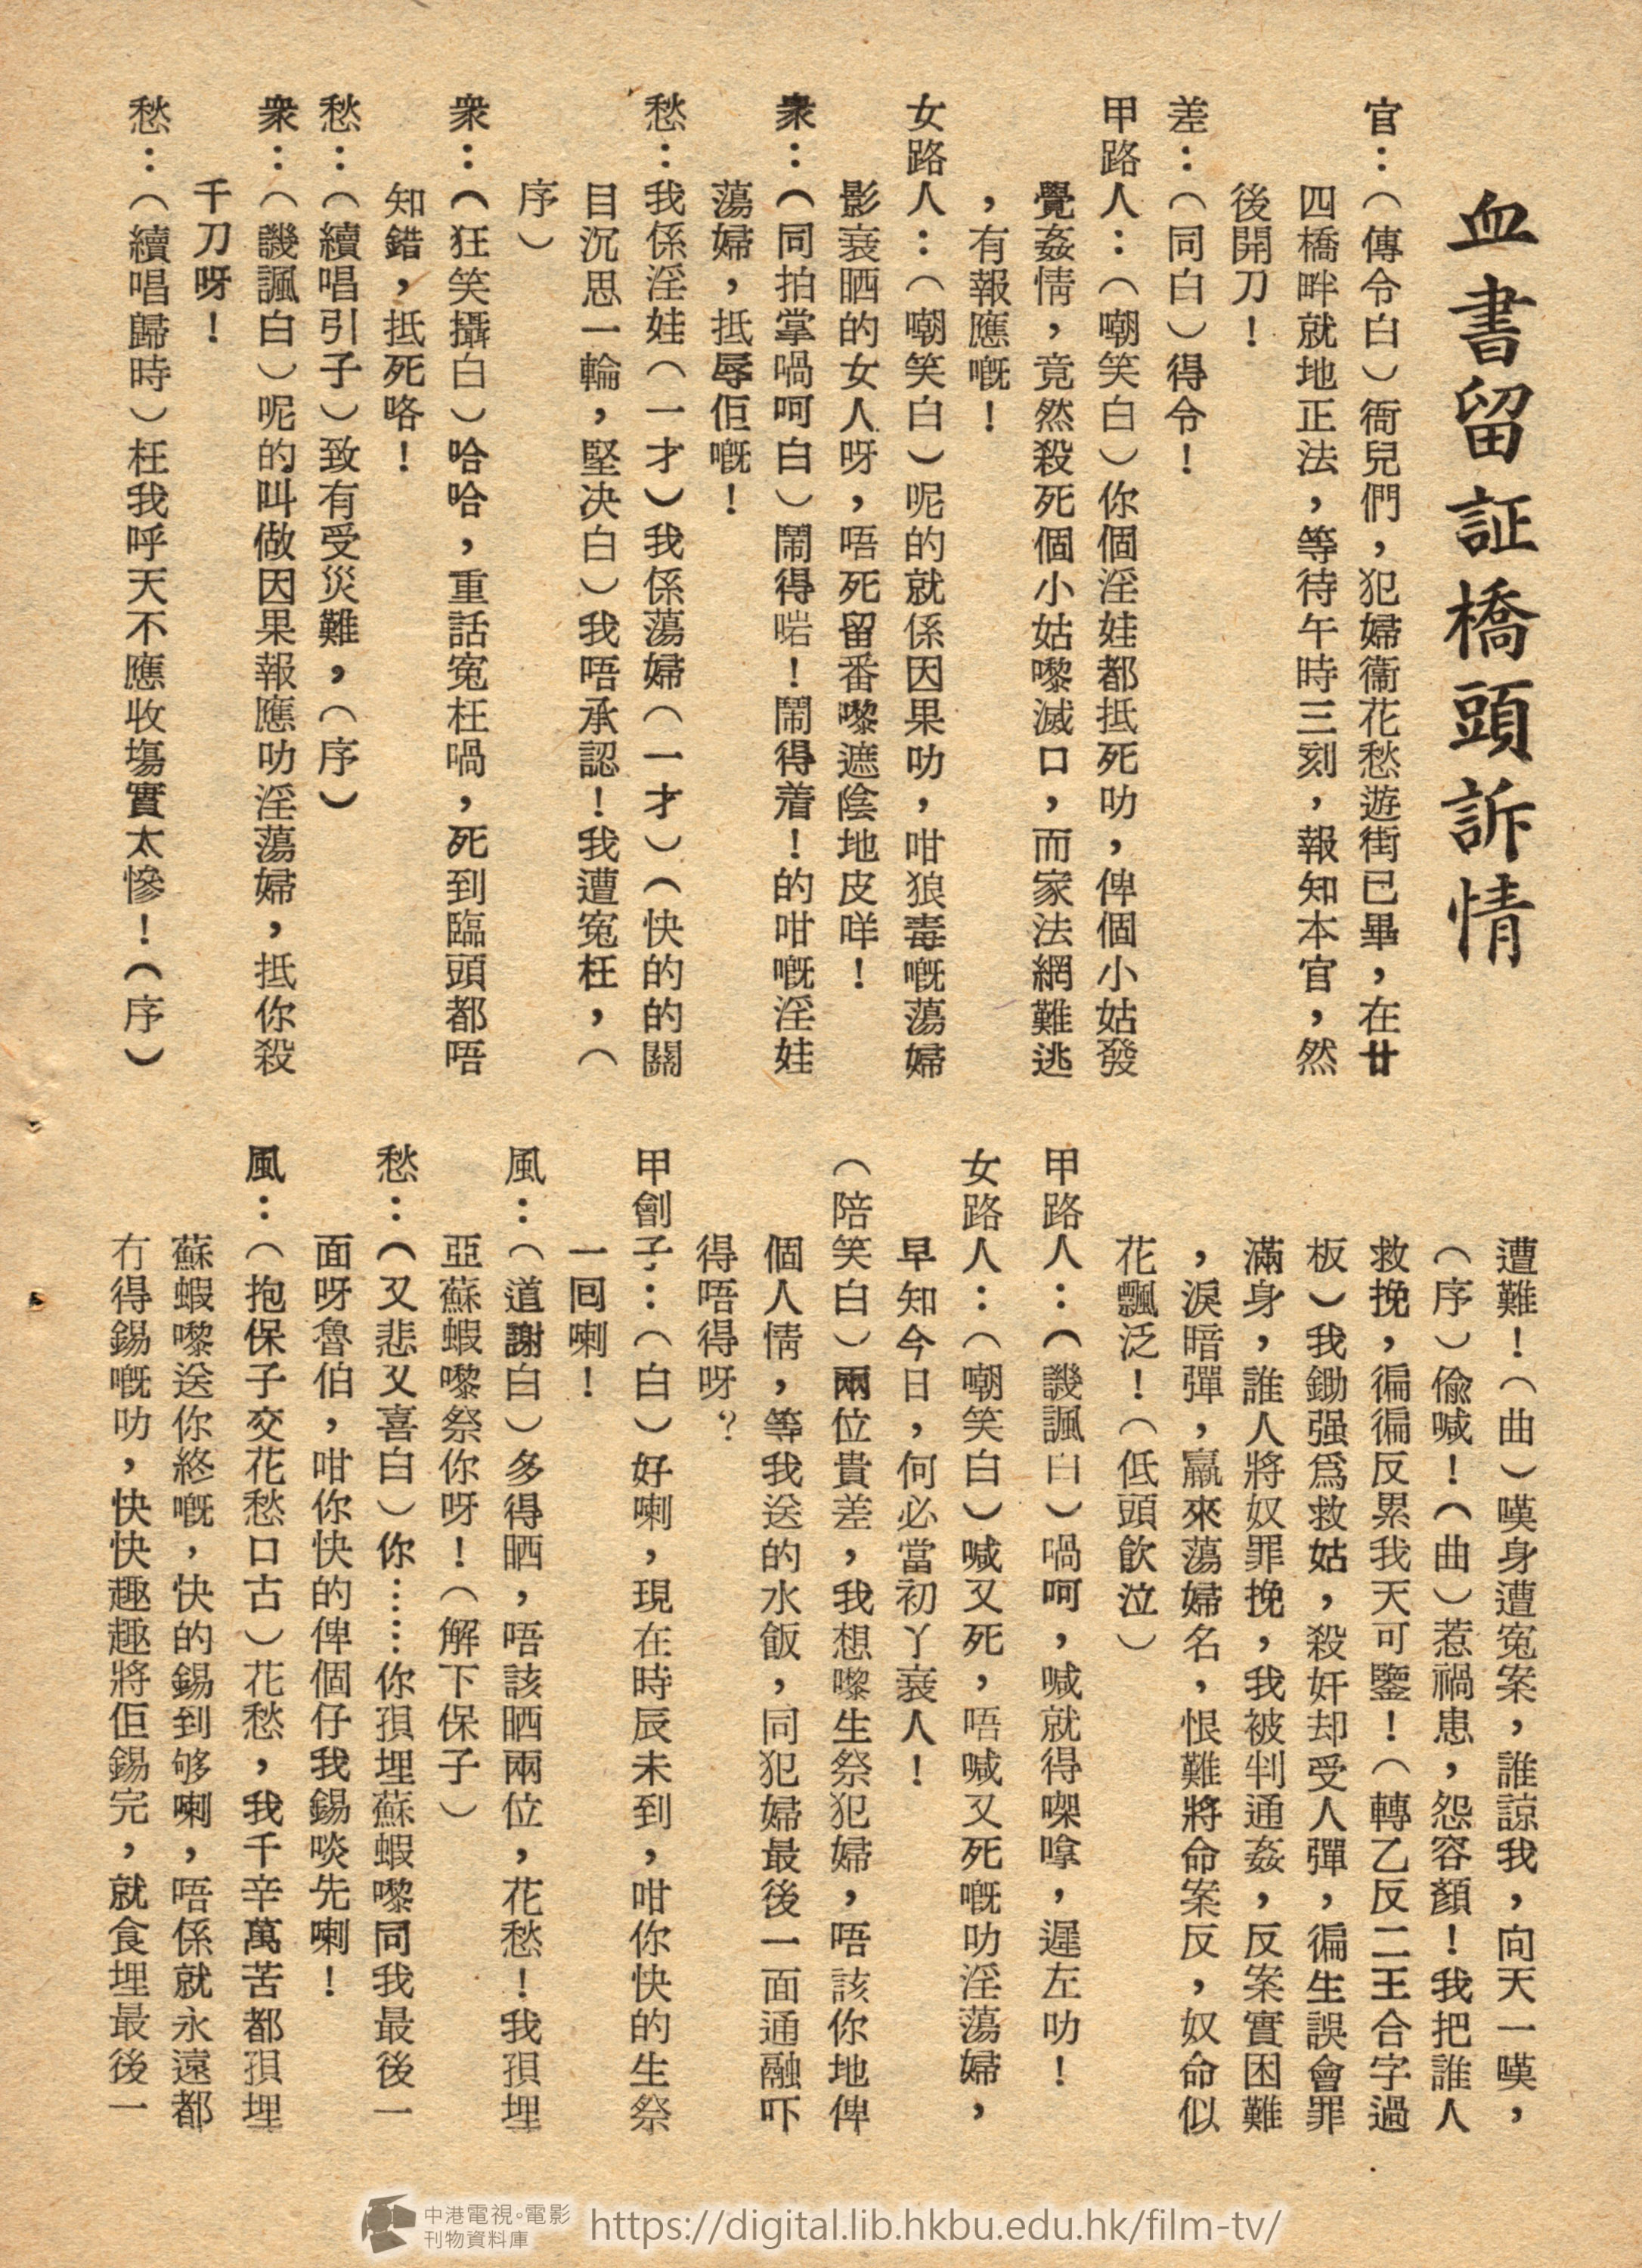 血書留証橋頭訴情
官：（傳令白）衙兒們，犯婦衞花愁遊街已畢，在廿
四橋畔就地正法，等待午時三刻，報知本官，然
後開刀！
差：（同白）得令！
甲路人：（嘲笑白）你個淫娃都抵死叻，俾個小姑發
覺姦情，竟然殺死個小姑嚟滅口，而家法網難逃
，有報應嘅！
女路人：（嘲笑白）呢的就係因果叻，咁狼毒嘅蕩婦
影衰晒的女人呀，唔死留番嚟遮陰地皮咩！
衆：（同拍掌喎呵白）鬧得啱！鬧得着！的咁嘅淫娃
蕩婦，抵辱佢嘅！
愁：我係淫娃（一才）我係蕩婦（一才）（快的的關
目沉思一輪，堅决白）我唔承認！我遭寃枉，（
序）
衆：（狂笑攝白）哈哈，重話寃枉喎，死到臨頭都唔
知錯，抵死咯！
愁：（續唱引子）致有受災難，（序）
衆：（譏諷白）呢的叫做因果報應叻淫蕩婦，抵你殺
千刀呀！
愁：（續唱歸時）枉我呼天不應收塲實太慘！（序）
遭難！（曲）嘆身遭寃案，誰諒我，向天一嘆，
（序）偸喊！（曲）惹禍患，怨容顏！我把誰人
救挽，徧徧反累我天可鑒！（轉乙反二王合字過
板）我鋤强爲救姑，殺奸却受人彈，徧生誤會罪
滿身，誰人將奴罪挽，我被判通姦，反案實困難
，淚暗彈，羸來蕩婦名，恨難將命案反，奴命似
花飄泛！（低頭飮泣）
甲路人：（譏諷白）喎呵，喊就得㗎嗱，遲左叻！
女路人：（嘲笑白）喊又死，唔喊又死嘅叻淫蕩婦，
早知今日，何必當初丫衰人！
（陪笑白）兩位貴差，我想嚟生祭犯婦，唔該你地俾
個人情，等我送的水飯，同犯婦最後一面通融吓
得唔得呀？
甲劊子：（白）好喇，現在時辰未到，咁你快的生祭
一囘喇！
風：（道謝白）多得晒，唔該晒兩位，花愁！我孭埋
亞蘇蝦嚟祭你呀！（解下保子）
愁：（又悲又喜白）你……你孭埋蘇蝦嚟同我最後一
面呀魯伯，咁你快的俾個仔我錫啖先喇！
風：（抱保子交花愁口古）花愁，我千辛萬苦都孭埋
蘇蝦嚟送你終嘅，快的錫到够喇，唔係就永遠都
冇得錫嘅叻，快快趣趣將佢錫完，就食埋最後一
中港電視。電影
刊物資料庫
https://digital.lib.hkbu.edu.hk/film-tv/